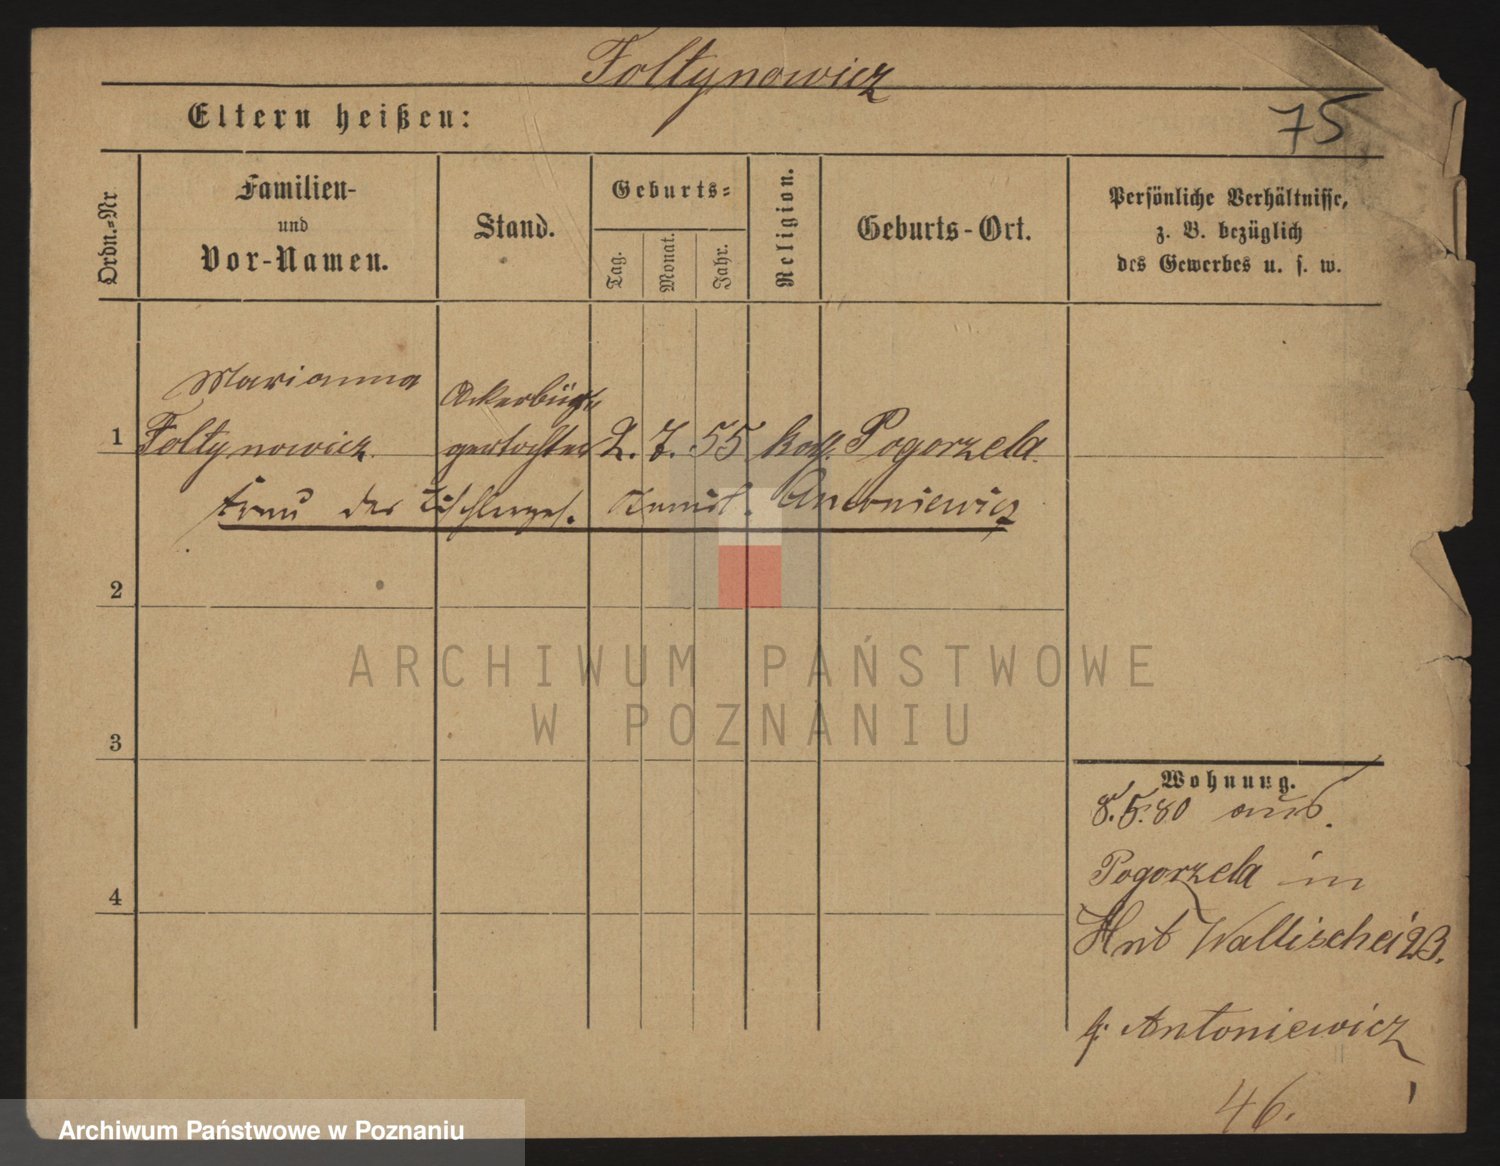 Foltynowicz
Eltern heißen:
75
Ordn.-Nr
Familien-
und
Vor-Namen.
Stand.
Geburts-
Tag.
Monat.
Jahr.
Religion.
Geburts-Ort.
Persönliche Verhältnisse,
z. B. bezüglich
des Gewerbes u. s. w.
Marianna
Ackerbür
1 Foltynowicz. gertochter 2. 7. 55 kath. Pogorzela.
Frau des Tischlerges. Antoniewicz
2
3
4
ARCHIWUM PAŃSTWOWE
W POZNANIU
Wohnung.
8.5.80 aus
Pogorzela in
Wallischei 23.
f. Antoniewicz
46.
Archiwum Państwowe w Poznaniu